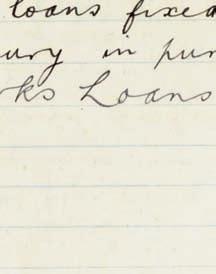 loans fixed
ury in pur
ks Loans